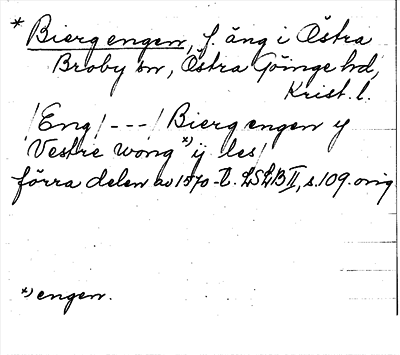 * Biergengen, f. äng i Östra
Broby sn, Östra Göinge hd,
Krist. l.
/Eng/ --- / Biergengen y
Vestre wong *) ij les/
förra delen av 1570-t. LSLB II, s. 109. orig
*) engen.